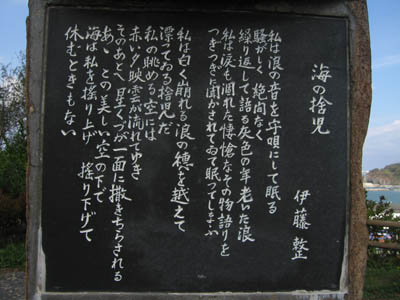 海の捨児
伊藤整
私は浪の音を守唄にして眠る
騒がしく 絶間なく
繰り返して語る灰色の年老いた浪
私は涙も涸れた凄愴なその物語りを
つぎつぎに聞かされてゐて眠つてしまふ
私は白く崩れる浪の穂を越えて
漂つてゐる捨児だ
私の眺める空には
赤い夕映雲が流れてゆき
そのあとへ 星くづが一面に撒きちらされる
あゝ この美しい空の下で
海は私を揺り上げ 揺り下げて
休むときもない